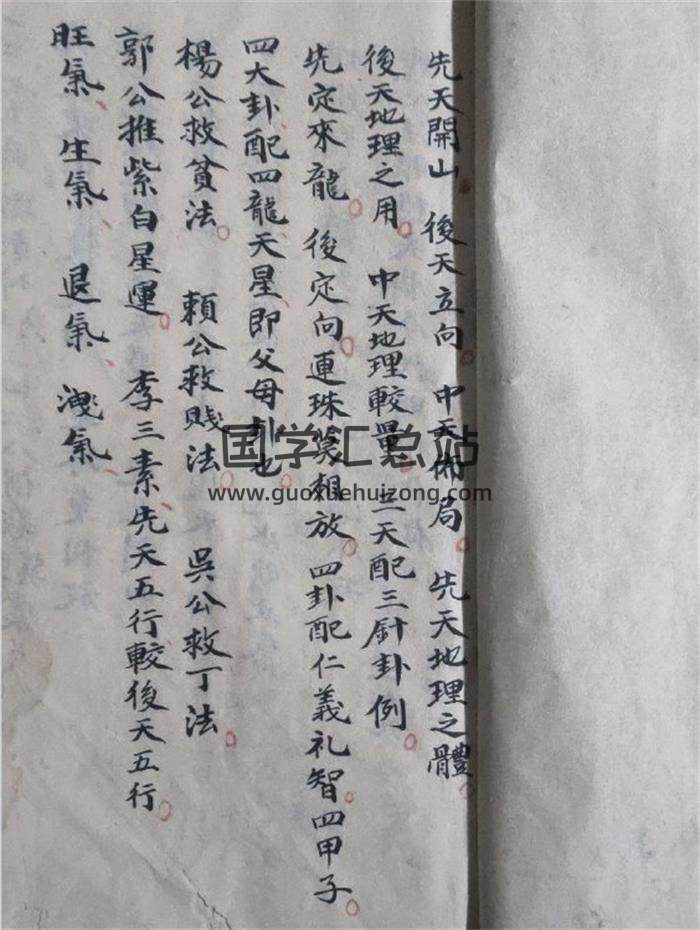 先天開山。後天立向。中天佈局。先天地理之體。
後天地理之用。中天地理較量。三天配三針卦例。
先定來龍。後定向。連珠算相放。四卦配仁義礼智四甲子。
四大卦配四龍天星即父母卦也
楊公救貧法。賴公救賤法。吳公救丁法。
郭公推紫白星運。李三素先天五行較後天五行。
旺氣、生氣、退氣、洩氣
国学汇总站
www.guoxuehuizong.com